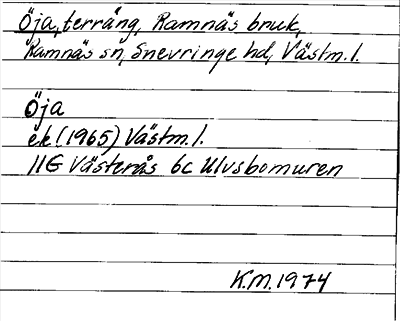 Öja, terräng, Ramnäs bruk,
Ramnäs sn, Snevringe hd, Västm.l.
Öja
ek (1965) Västm.l.
11G Västerås 6c Ulvsbomuren
K.M. 1974